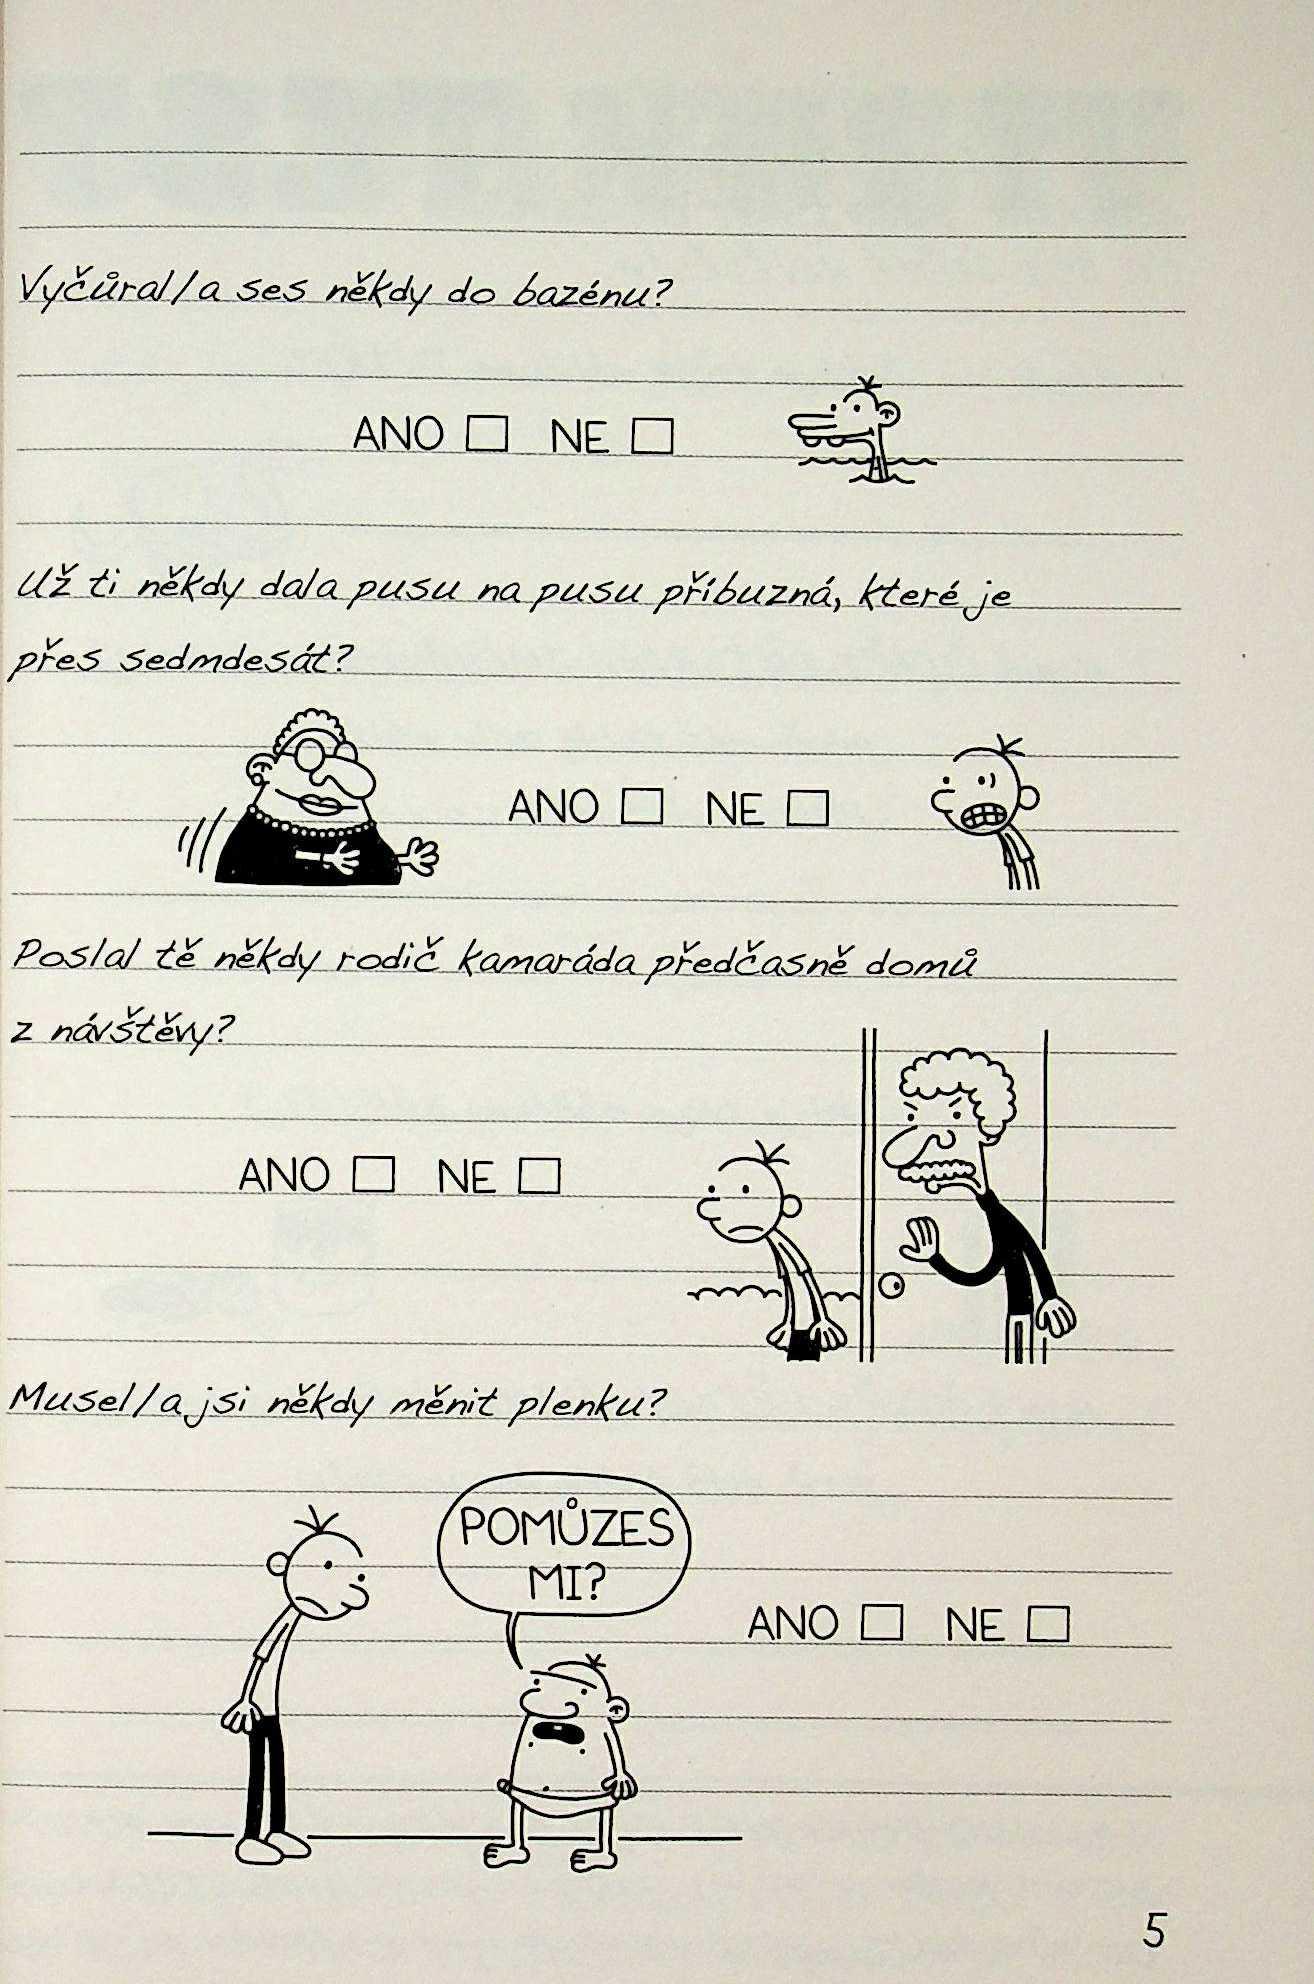 Vyčůral/a ses někdy do bazénu?
ANO NE
Už ti někdy dala pusu na pusu příbuzná, které je
přes sedmdesát?
ANO NE
Poslal tě někdy rodič kamaráda předčasně domů
z návštěvy?
ANO NE
Musel/a jsi někdy měnit plenku?
POMŮZES
MI?
ANO NE
5